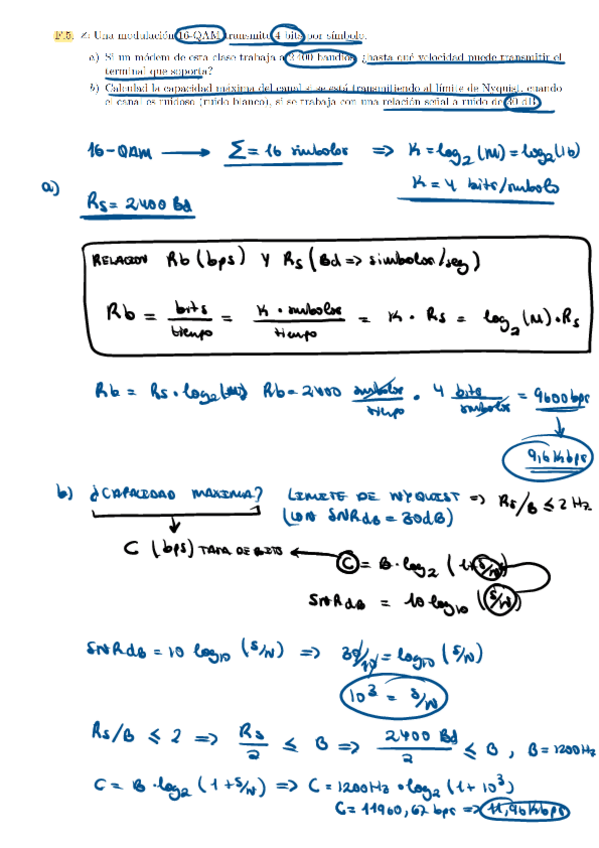 F.5. 2: Una modulación 16-QAM transmite 4 bits por símbolo.
a) Si un módem de esta clase trabaja a 2400 baudios, ¿hasta qué velocidad puede transmitir el
terminal que soporta?
b) Calculad la capacidad máxima del canal si se está transmitiendo al límite de Nyquist, cuando
el canal es ruidoso (ruido blanco), si se trabaja con una relación señal a ruido de 30 dB.
16-QAM → Σ = 16 símbolos => K = log₂(M) = log₂(16)
K = 4 bits/símbolo
a)
Rs = 2400 Bd
RELACION Rb (bps) Y Rs (Bd => símbolos/seg)
Rb = bits/tiempo = K · símbolos/tiempo = K · Rs = log₂(M) · Rs
Rb = Rs · log₂(M) Rb = 2400 símbolos/tiempo · 4 bits/símbolos = 9600 bps
9,6 Kbps
b) ¿CAPACIDAD MAXIMA? LIMITE DE NYQUIST => Rs/B ≤ 2 Hz
(CON SNRdB = 30dB)
C (bps) TASA DE BITS ← C = B · log₂ (1+S/N)
SNRdB = 10 log₁₀ (S/N)
SNRdB = 10 log₁₀ (S/N) => 30/10 = log₁₀ (S/N)
10³ = S/N
Rs/B ≤ 2 => Rs/2 ≤ B => 2400 Bd/2 ≤ B , B = 1200 Hz
C = B · log₂ (1 + S/N) => C = 1200 Hz · log₂ (1 + 10³)
C = 11960,67 bps => 11,96 Kbps